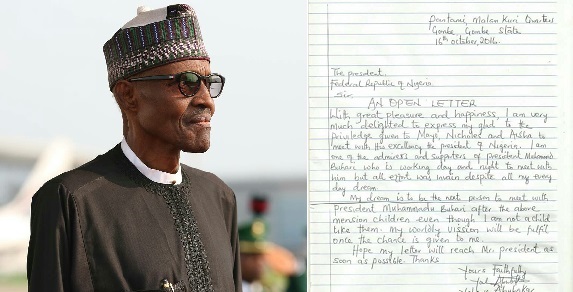 Pantami Malan Kuri Quarters
Gombe, Gombe State
16th October, 2016.
The president,
Federal Republic of Nigeria
Sir,
AN OPEN LETTER
With great pleasure and happiness, I am very
much delighted to express my glad to the
Priviledge given to Maya, Nicholas and Aisha to
meet with his excellency the president of Nigeria. I am
one of the admirers and supporters of president Muhammad
Buhari who is working day and night to meet with
him but all effort was invain despite all my every
day dream.
My dream is to be the next person to meet with
President Muhammadu Buhari after the above
mension children even though I am not a child
like them. My worldly vission will be fulfil
once the chance is given to me.
Hope my letter will reach Mr. president as
soon as possible. Thanks
Yours faithfully
Abubakar